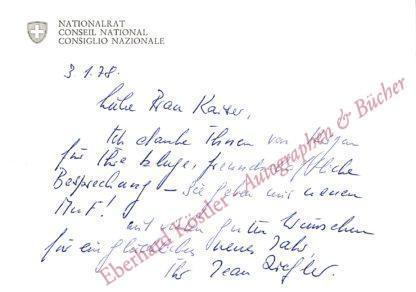 NATIONALRAT
CONSEIL NATIONAL
CONSIGLIO NAZIONALE
3.1.78.
Liebe Frau Kaiser,
Ich danke Ihnen von Herzen
für Ihre kluge, freundschaftliche
Besprechung – Sie geben mir neuen
Mut!
mit guten Wünschen
für ein glückliches neues Jahr,
Ihr Jean Ziegler.
Eberhard Köstler Autographen & Bücher